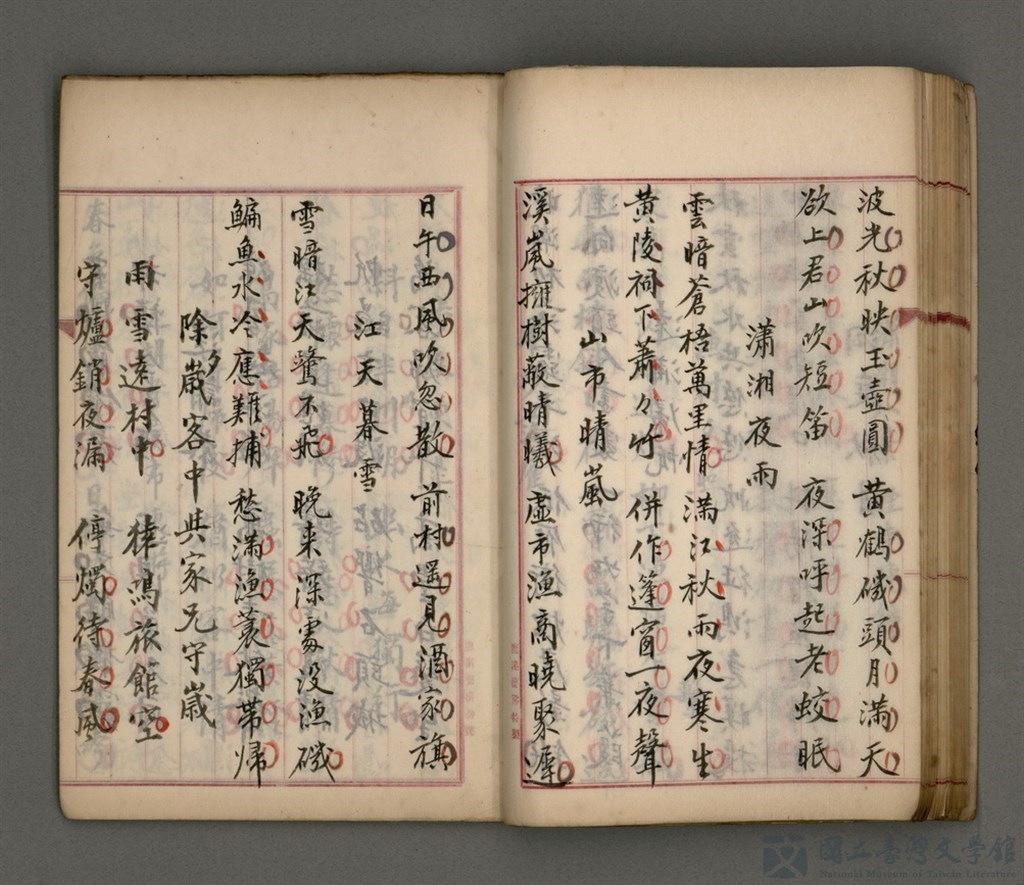 波光秋映玉壺圓　黃鶴磯頭月滿天
欲上君山吹短笛　夜深呼起老蛟眠
瀟湘夜雨
雲暗蒼梧萬里情　滿江秋雨夜寒生
黃陵祠下蕭々竹　併作篷窗一夜聲
山市晴嵐
溪嵐擁樹蔽晴曦　虛市漁商曉聚遲
日午西風吹忽散　前村遥見酒家旗
江天暮雪
雪暗江天鷺不飛　晚来深處没漁磯
鯿魚水冷應難捕　愁滿漁蓑獨帶歸
除夕歲客中與家兄守歲
雨雪遠村中　鴻旅館空
守爐銷夜漏　停燭待春風
國立臺灣文學館
National Museum of Taiwan Literature